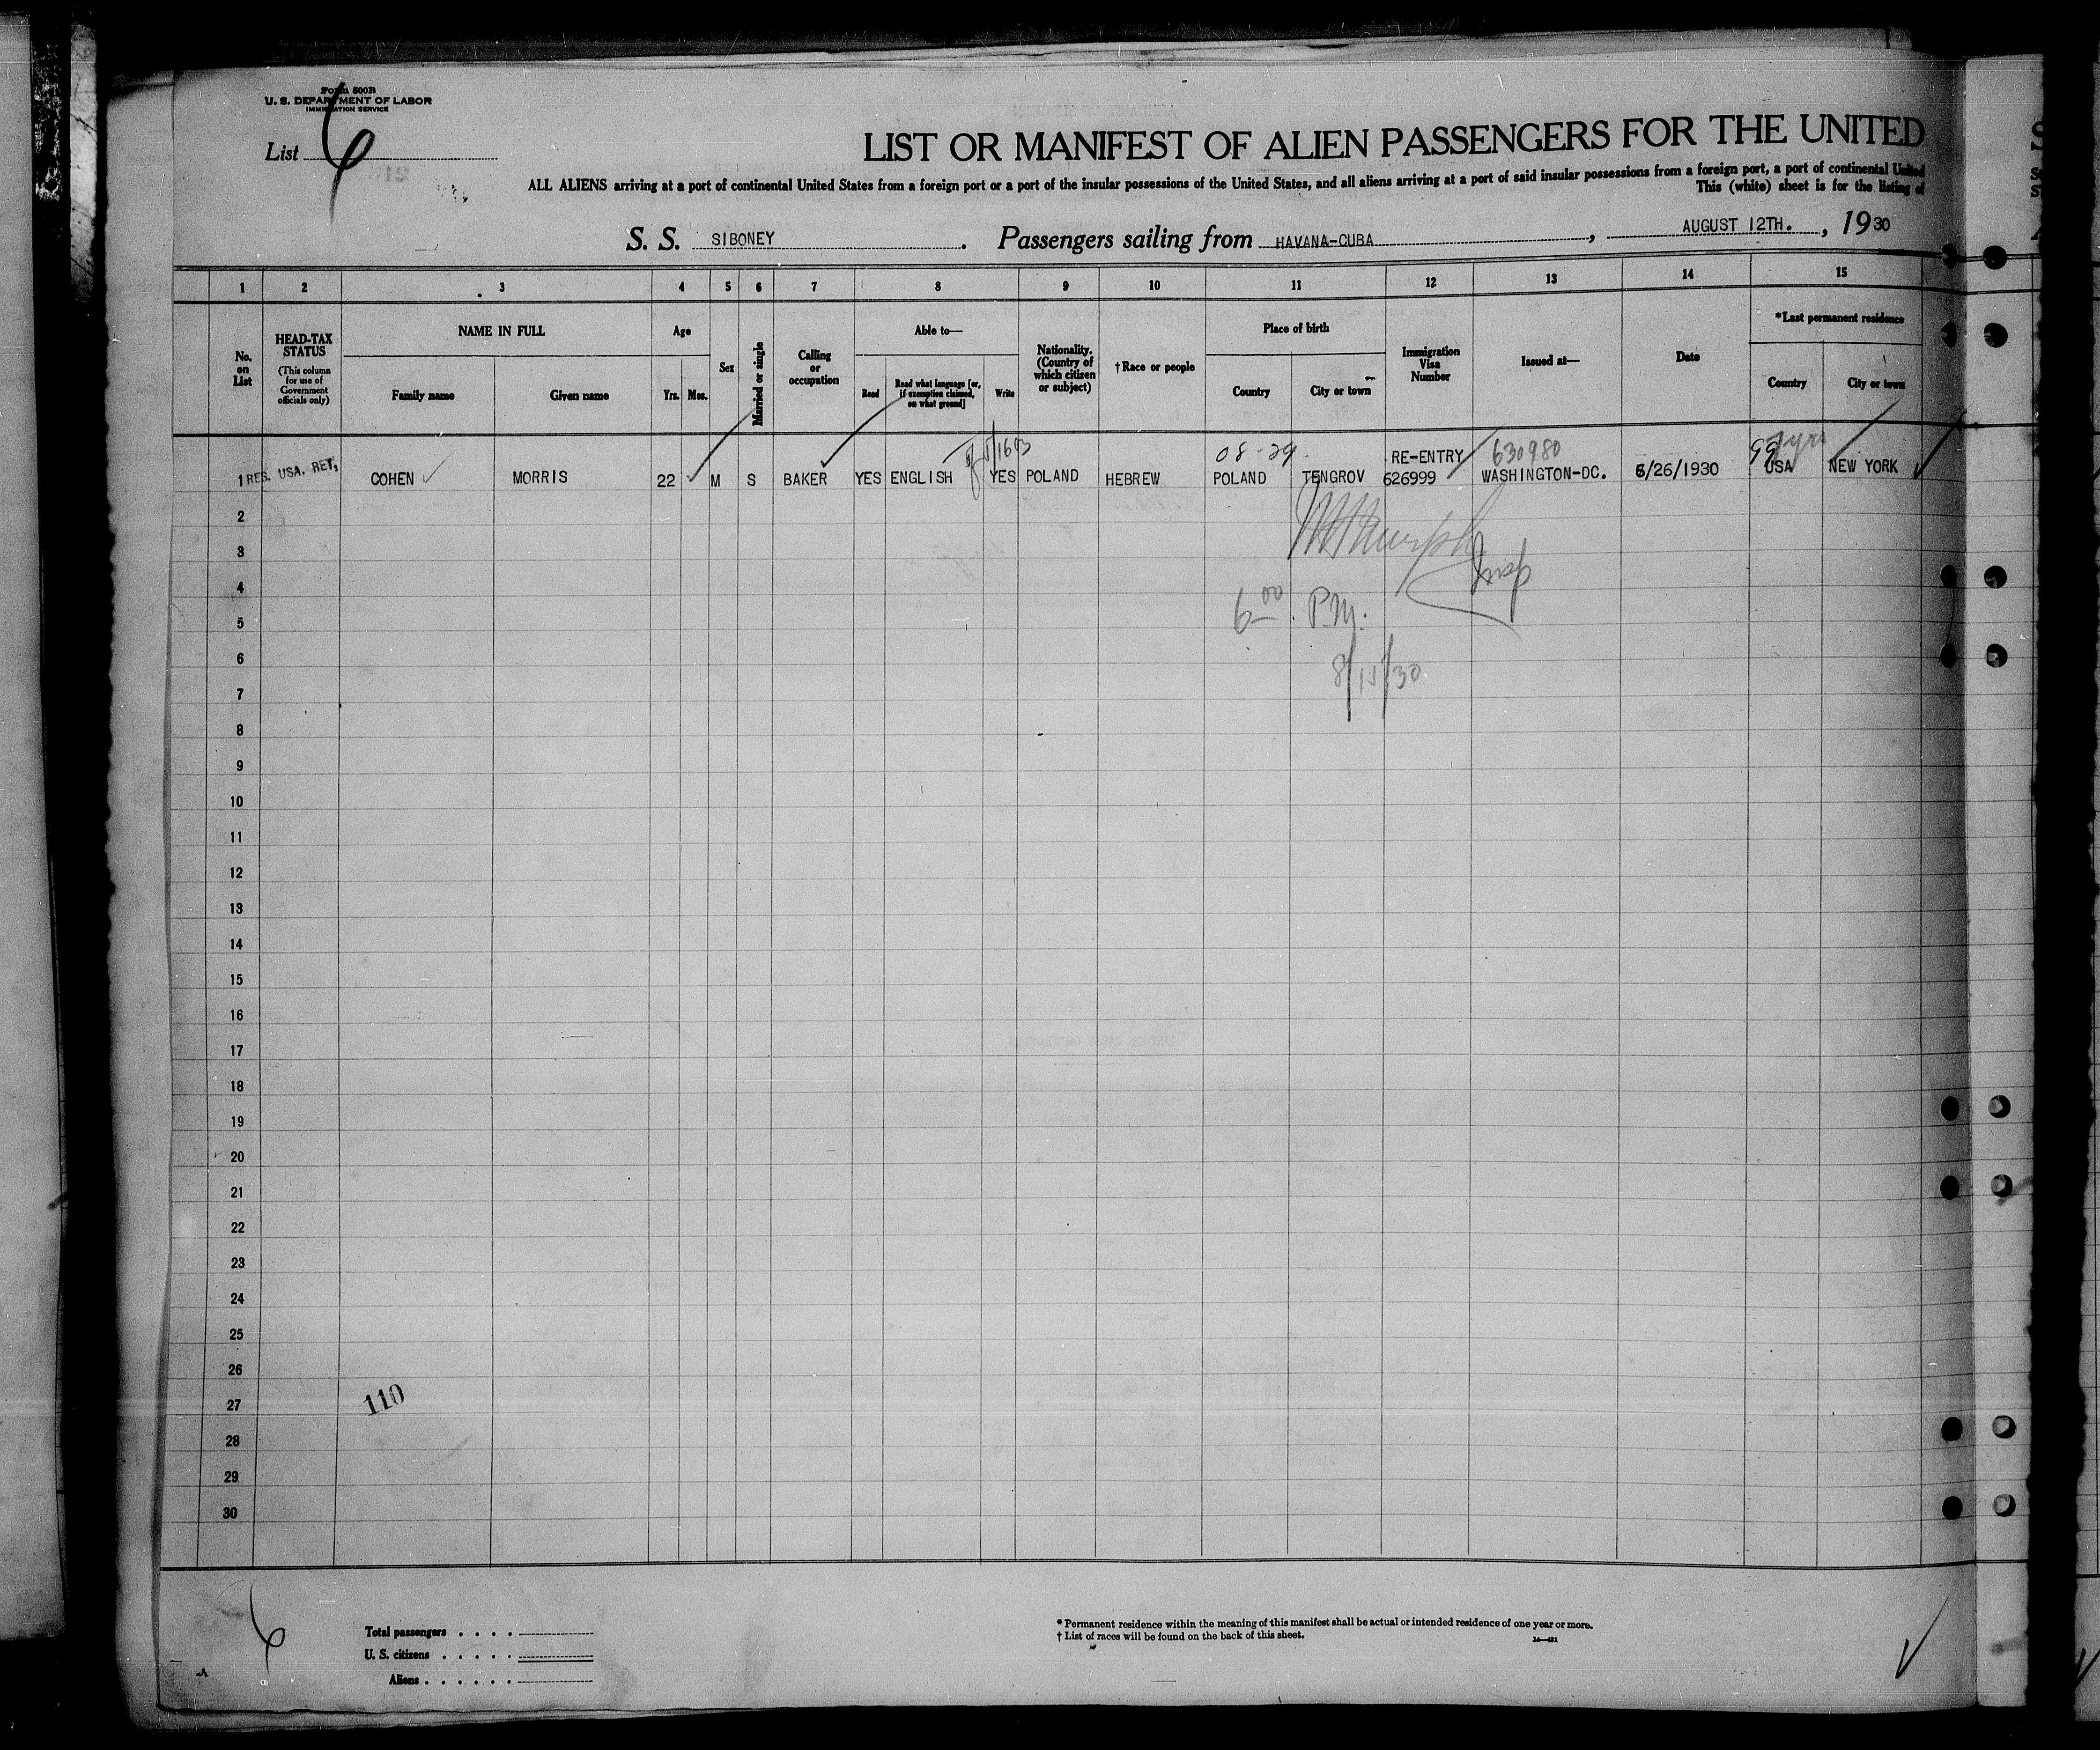 Form 500B
U. S. DEPARTMENT OF LABOR
IMMIGRATION SERVICE
List 6
LIST OR MANIFEST OF ALIEN PASSENGERS FOR THE UNITED
ALL ALIENS arriving at a port of continental United States from a foreign port or a port of the insular possessions of the United States, and all aliens arriving at a port of said insular possessions from a foreign port, a port of continental United
This (white) sheet is for the listing of
S. S. SIBONEY. Passengers sailing from HAVANA-CUBA, AUGUST 12TH., 1930
1 2 3 4 5 6 7 8 9 10 11 12 13 14 15
No. on List
HEAD-TAX STATUS (This column for use of Government officials only)
NAME IN FULL
Family name
Given name
Age
Yrs. Mos.
Sex
Married or single
Calling or occupation
Able to—
Read
Read what language [or, if exemption claimed, on what ground]
Write
Nationality. (Country of which citizen or subject)
†Race or people
Place of birth
Country
City or town
Immigration Visa Number
Issued at—
Date
*Last permanent residence
Country
City or town
08-29. 630980
1 RES. USA. RET, COHEN MORRIS 22 M S BAKER YES ENGLISH YES POLAND HEBREW POLAND TENGROV RE-ENTRY 626999 WASHINGTON-DC. 6/26/1930 USA NEW YORK
2
3
Insp
4
6 00 P.M.
5
6
8/15/30
7
8
9
10
11
12
13
14
15
16
17
18
19
20
21
22
23
24
25
26
110
27
28
29
30
6
Total passengers . . . .
U. S. citizens . . . . .
Aliens . . . . . .
* Permanent residence within the meaning of this manifest shall be actual or intended residence of one year or more.
† List of races will be found on the back of this sheet.